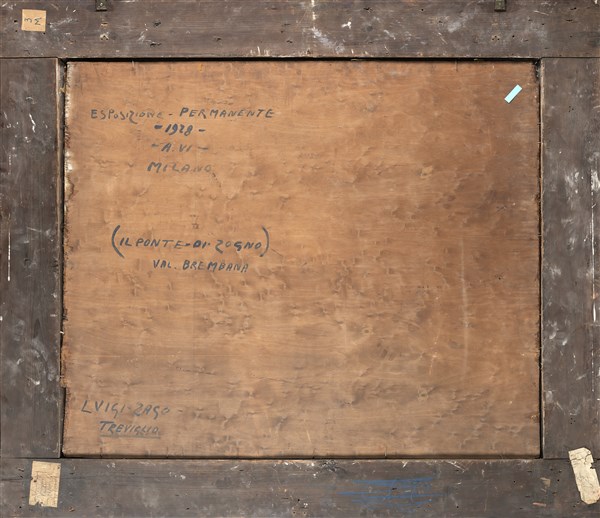 ESPOSIZIONE - PERMANENTE
- 1928 -
- A. VI -
MILANO
(IL PONTE-DI-ZOGNO)
VAL. BREMBANA
LVIGI-ZAGO-
TREVIGLIO